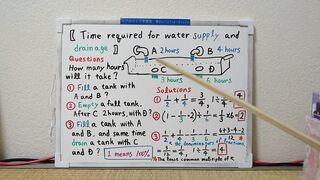 【 Time required for water supply and
drainage 】
A 2 hours
B 4 hours
C
D
3 hours
6 hours
Questions
How many hours
will it take ?
① Fill a tank with
A and B ?
② Empty a full tank.
After C 2 hours, with D ?
③ Fill a tank with
A and B. and same time
drain a tank with C
and D ?
1 means 100%
Solutions
① 1/2 + 1/4 = 3/4, 1 ÷ 3/4 = 4/3
② (1 - 1/3 × 2) ÷ 1/6 = 1/3 × 6 = 2
③ 1/2 + 1/4 - 1/3 - 1/6 = 6+3-4-2/12
= 3/12 = 1/4, 1 ÷ 1/4 = 4